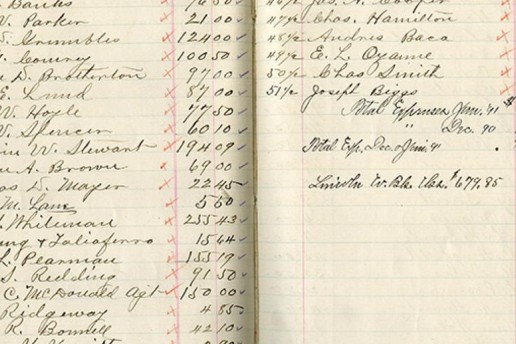 Banks 76 50
V. Parker 21 00
S. Grumbles 124 00
Coury 100 50
D. Brotherton 97 00
E. Lund 87 00
W. Hoyle 77 50
V. Spencer 60 10
W. Stewart 194 09
A. Brown 69 00
D. Mayer 22 45
M. Lane 5 50
Whiteman 255 43
& Taliaferro 15 64
L. Pearman 155 19
S. Redding 91 50
C. McDonald Agt 150 00
Ridgeway 4 85
R. Bonnell 42 10
46 Jas. A. Cooper
47 Chas. Hamilton
48 Andres Baca
49 E. L. Ozanne
50 Chas Smith
51 Joseph Biggs
Total Expenses Jan. '91 $
" Dec. 90
Total Exp. Dec. & Jan. 91
Lincoln $1,679.85